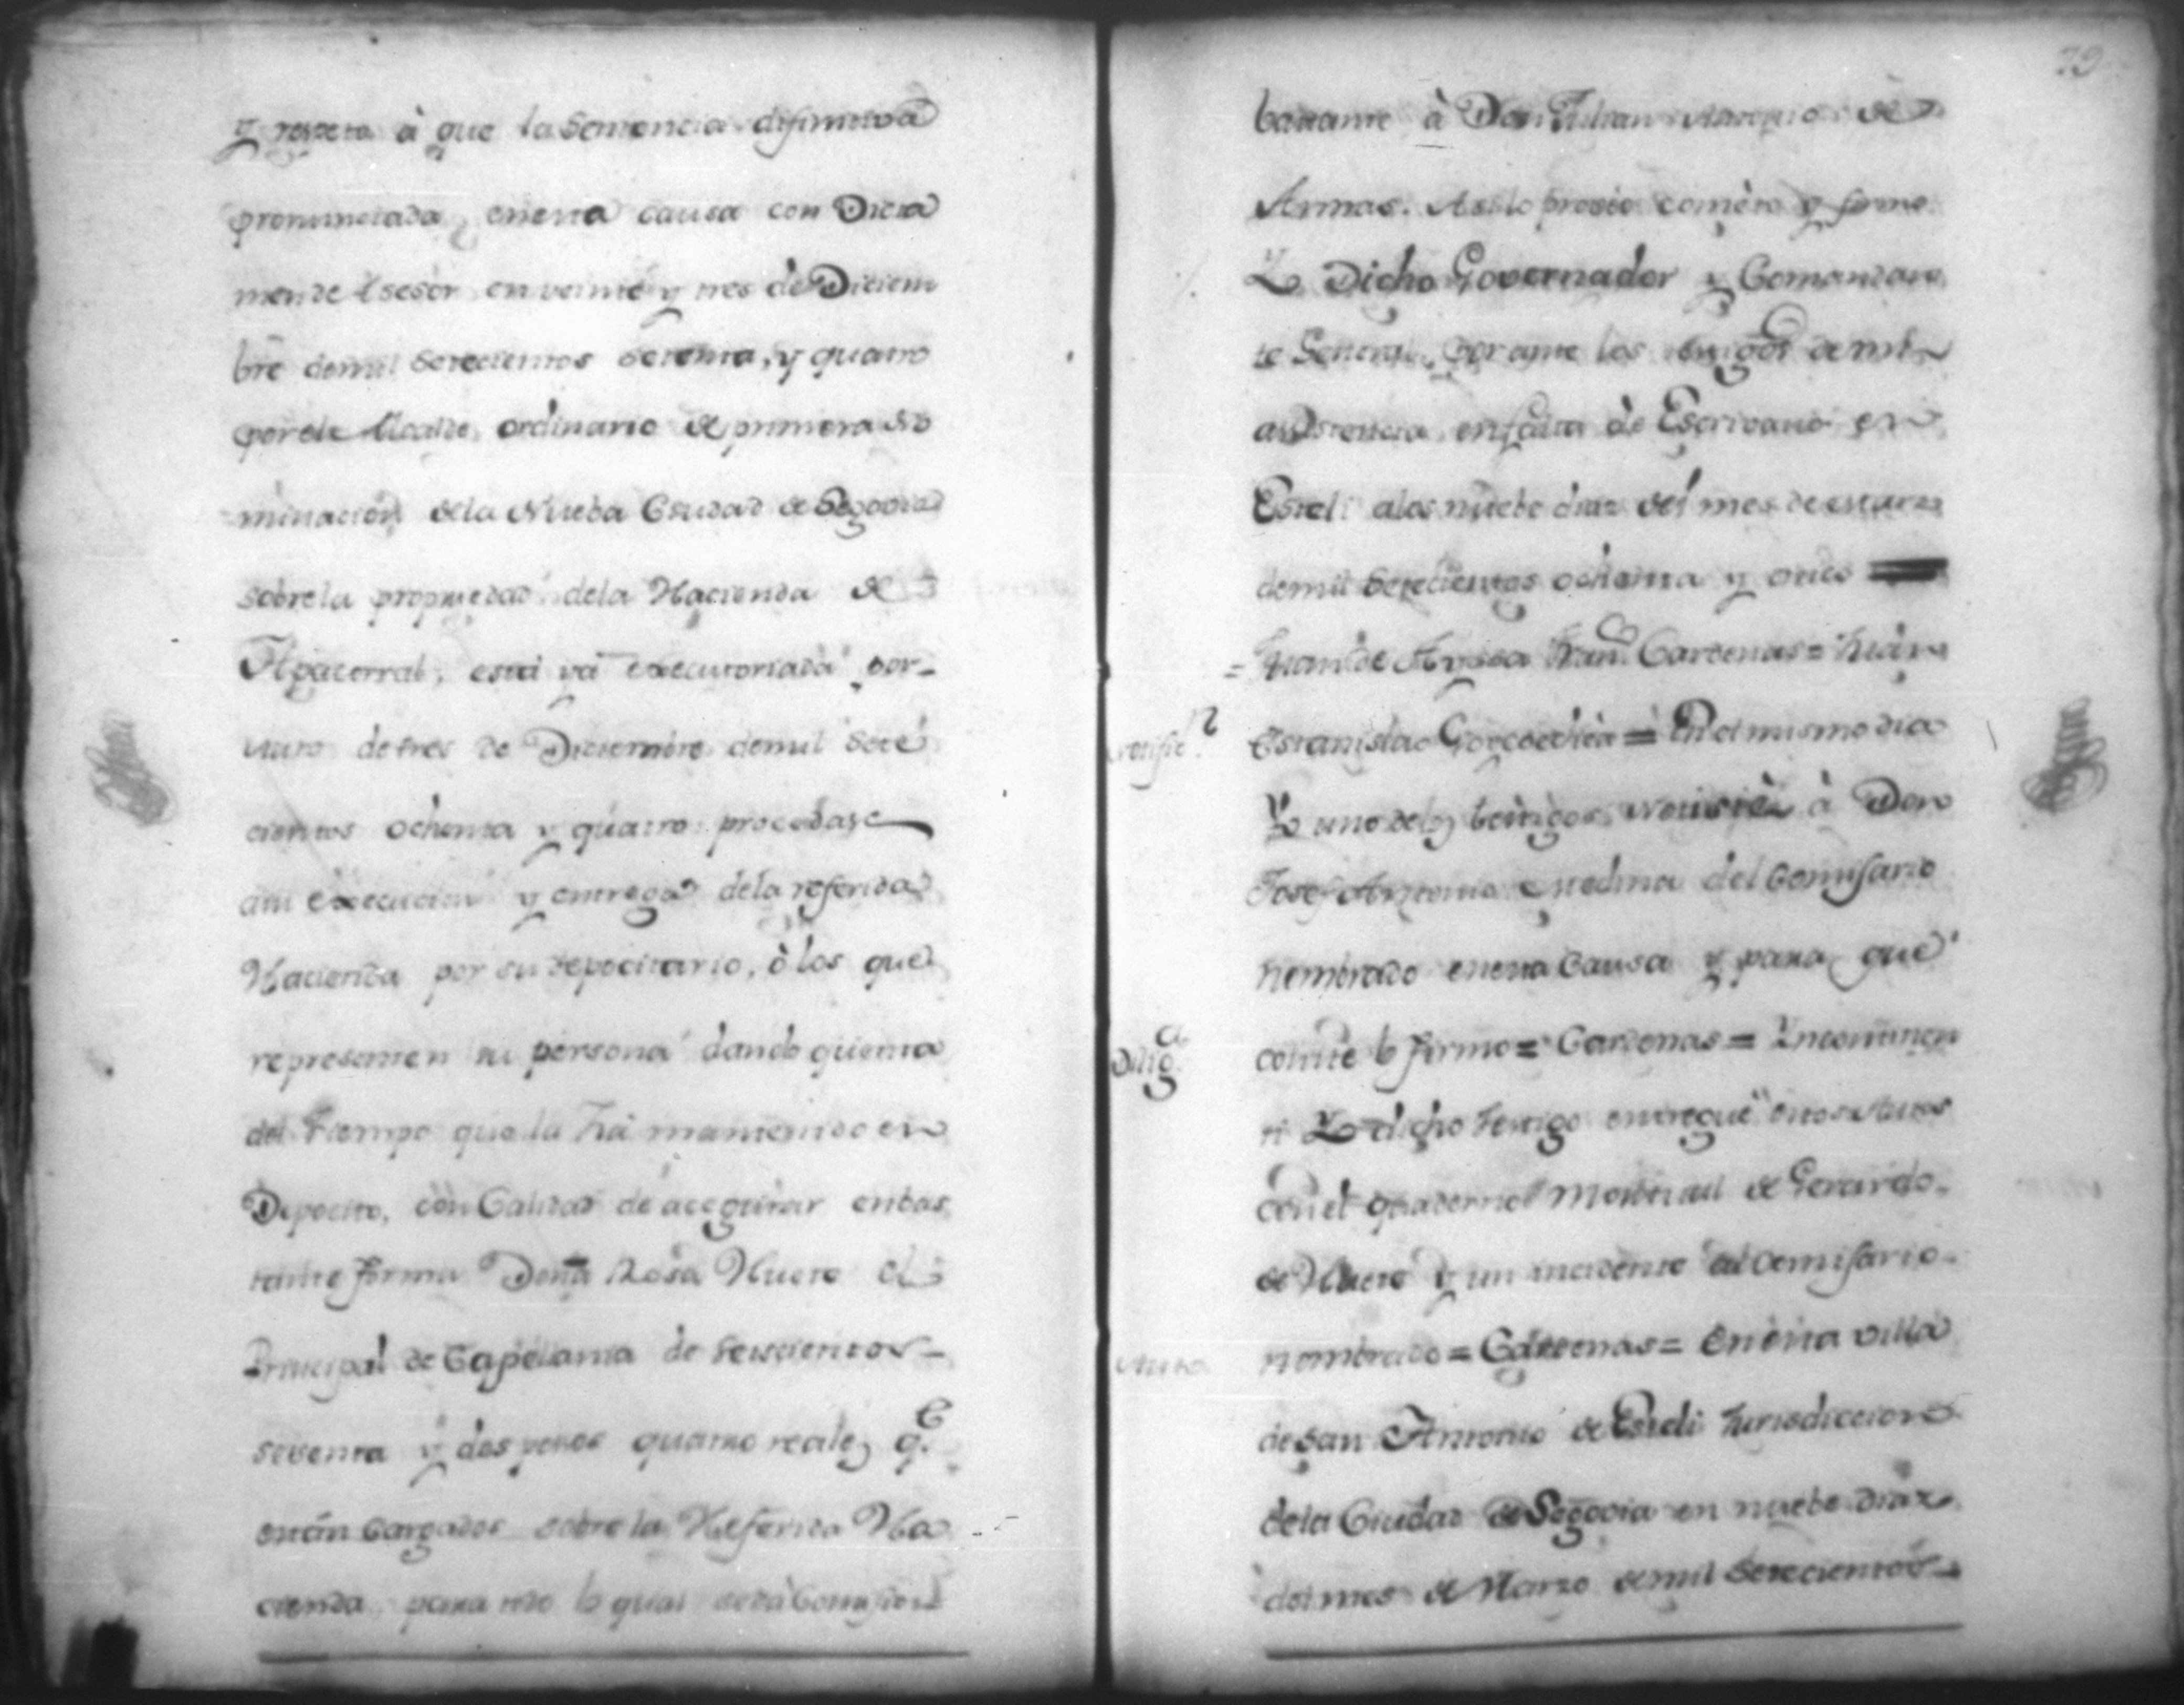 y respeto à que la Sentencia difinitiva
pronunciada, en esta causa con Dicta
men de Asesòr en veinte y tres de Diciem
bre de mil Setecientos Setenta, y quatro
por el Alcalde ordinario de primera No
minacion de la Nueba Ciudad de Segovia
sobre la propriedad de la Hacienda de
Apacorral, está yá executoriada por
Auto de tres de Diciembre de mil Sete
cientos ochenta y quatro procedase
a su execucion y entrega de la referida
Hacienda por su depocitario, ò los que
representen su persona dando quenta
del tiempo que la há mantenido en
Depocito, con Calidad de acegurar en bas
tante forma Doña Rosa Huete el
Principal de Capellania de seiscientos
setenta y dos pesos quatro reales q.e
están Cargados sobre la Referida Ha
cienda para todo lo qual se dá Comision
79
bastante à Don Julian Antonio de
Armas. Asi lo probeo cometo y firmo
Yo Dicho Governador y Comandan
te General, por ante los testigos de mi
asistencia en falta de Escrivano en
Esteli a los nuebe dias del mes de Marzo
de mil Setecientos ochenta y cinco
= Juan de Ayssa Fran.co Cardenas = Juan
Estanislao Gorcoechea = En el mismo dia
notific.n
Yo uno de los testigos notisié à Don
Josef Antonio Medina del Comisario
nombrado en esta Causa y para que
conste lo firmo = Cardenas = Yncontinen
Dilig.a
ti Yo dicho testigo entregué estos Autos
con el quaderno Mortual de Gerardo
de Huete y un incidente al Comisario
nombrado = Cardenas = En esta villa
Auto
de San Antonio de Esteli Jurisdiccion
de la Ciudad de Segovia en nuebe dias
del mes de Marzo de mil Setecientos